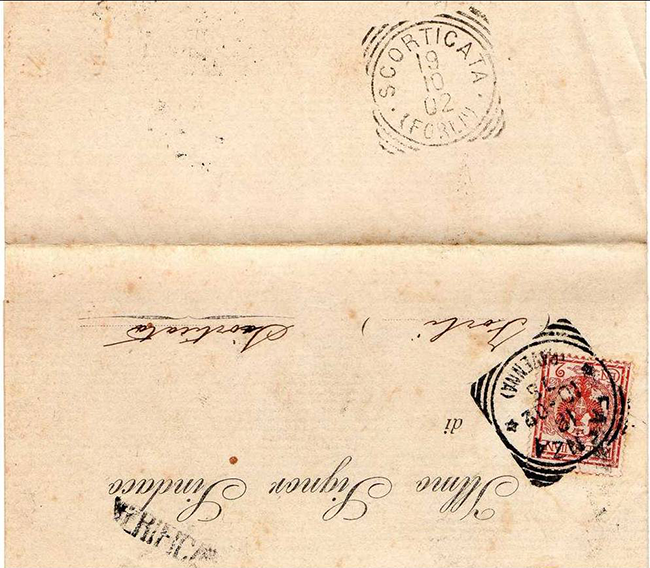 SCORTICATA
19
10
02
(FORLI)
Illmo Signor Sindaco
di
(Forlì) Scorticata
FAENZA
18
10-02
(RAVENNA)